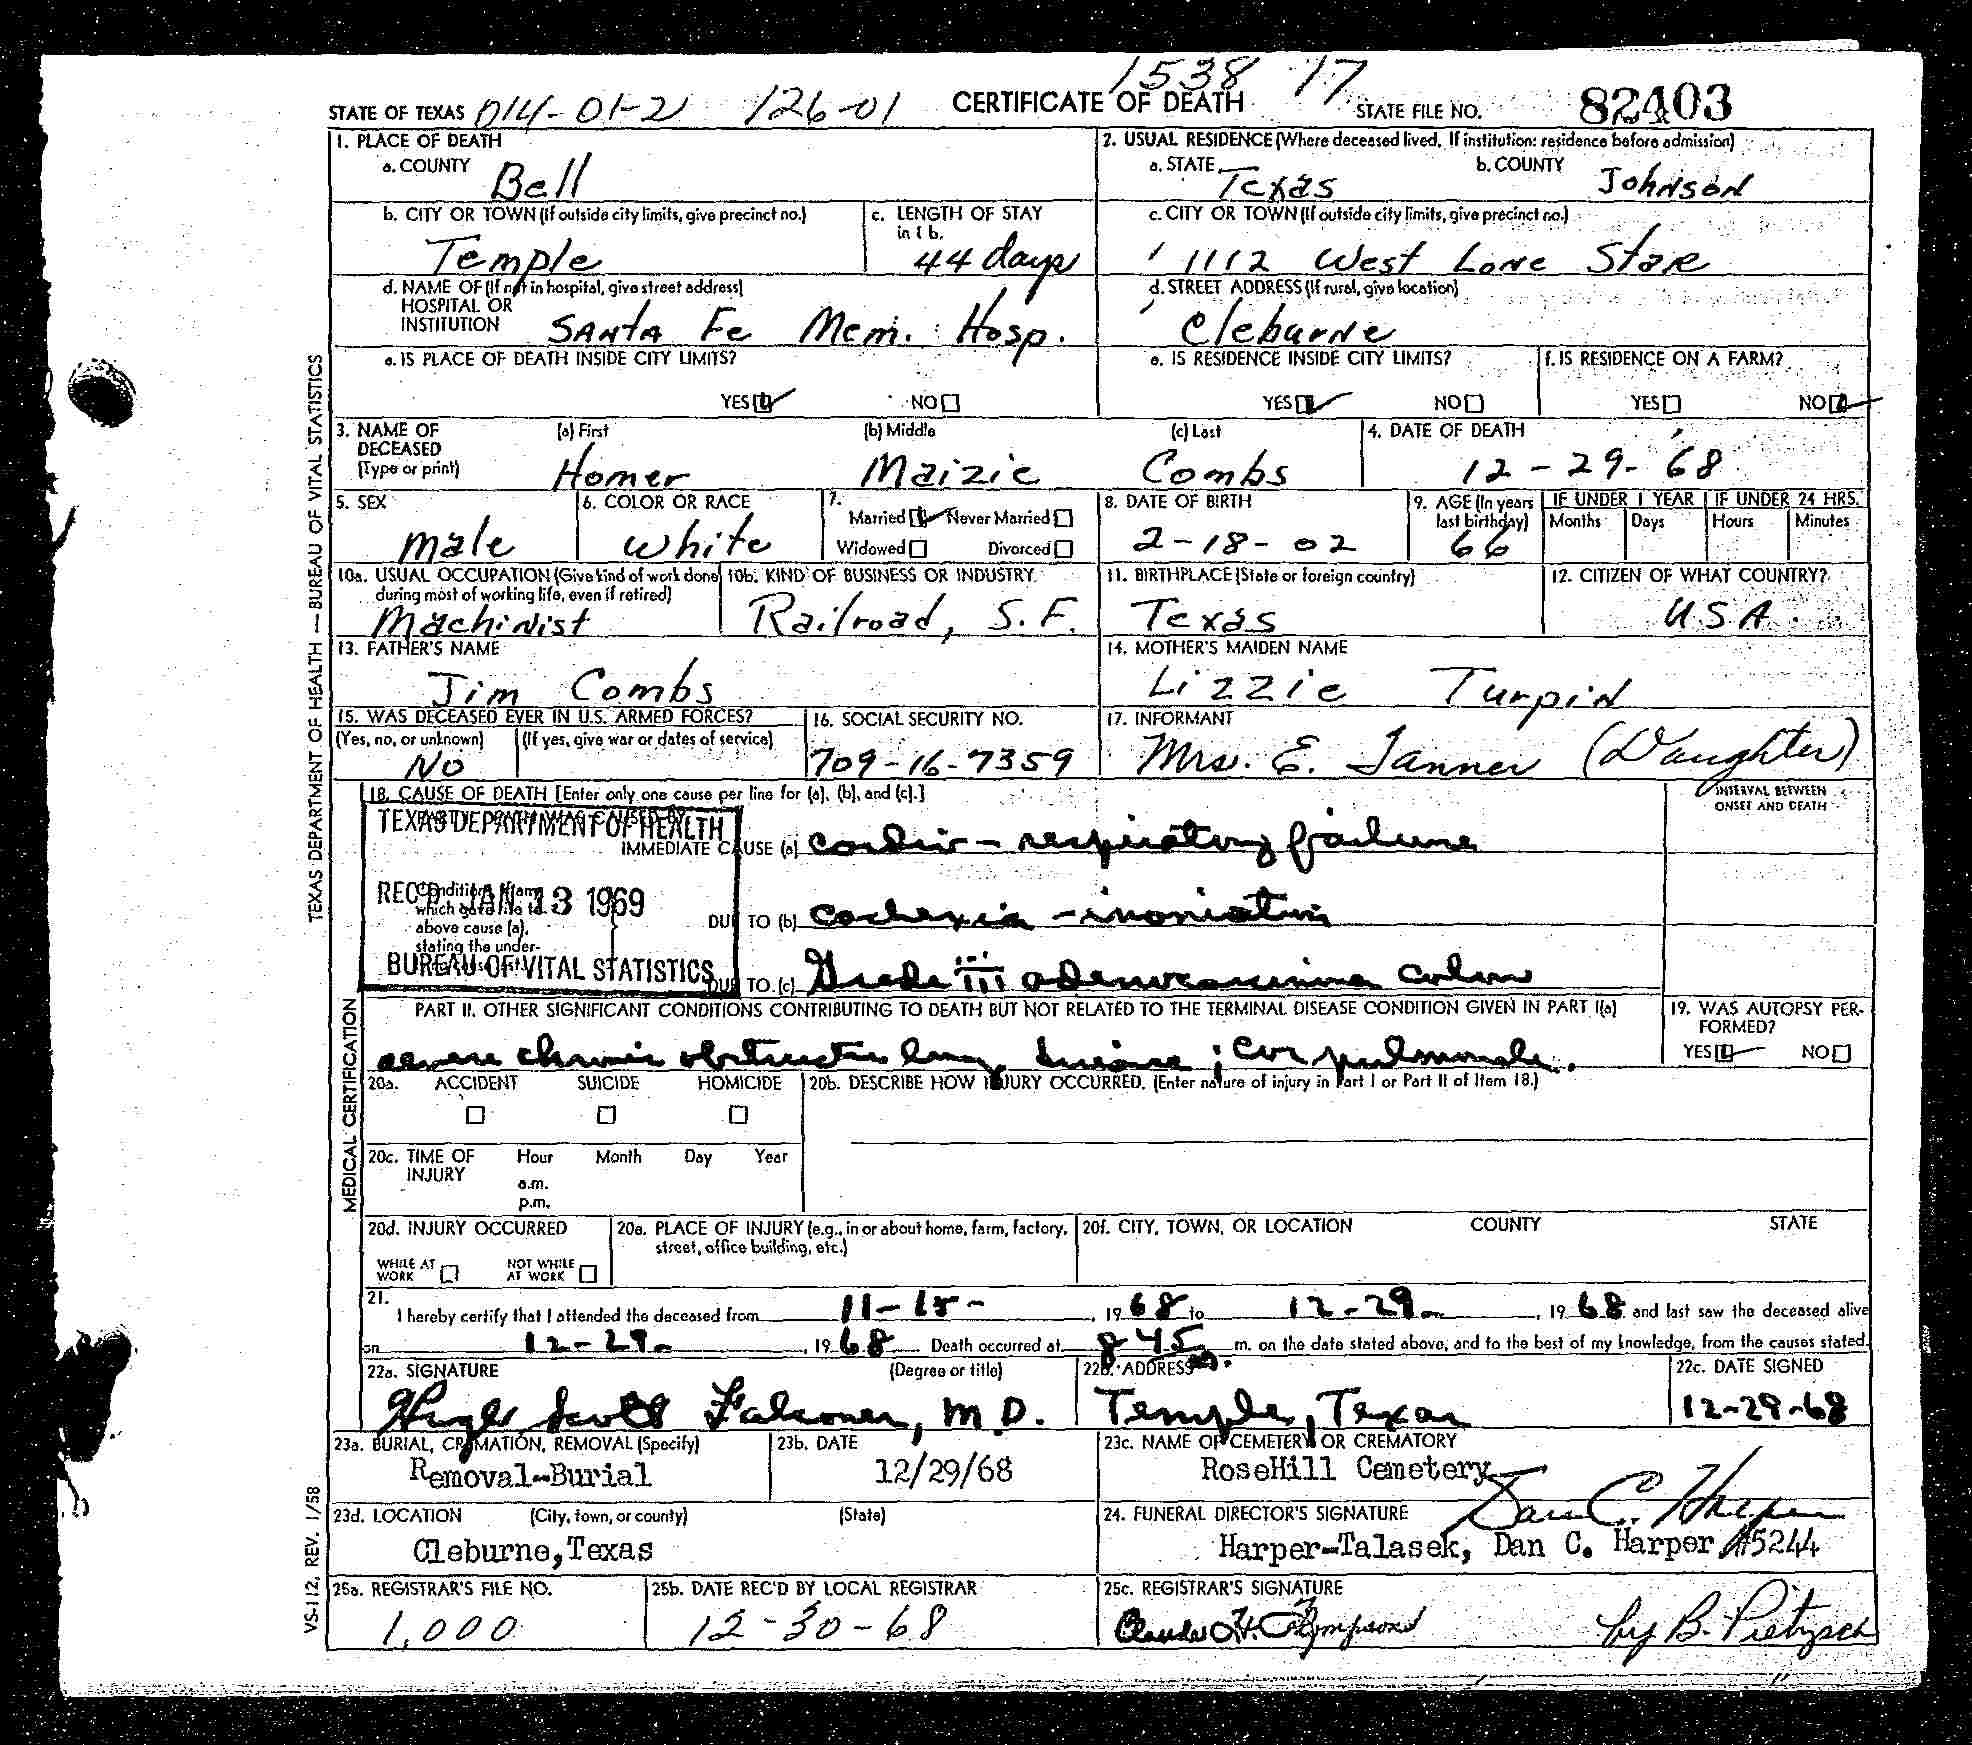 1538 17
STATE OF TEXAS 014-01-2 126-01 CERTIFICATE OF DEATH STATE FILE NO. 82403
1. PLACE OF DEATH
a. COUNTY Bell
2. USUAL RESIDENCE (Where deceased lived. If institution: residence before admission)
a. STATE Texas b. COUNTY Johnson
b. CITY OR TOWN (If outside city limits, give precinct no.)
Temple
c. LENGTH OF STAY
in 1 b.
44 days
c. CITY OR TOWN (If outside city limits, give precinct no.)
1112 West Lone Star
d. NAME OF (If not in hospital, give street address)
HOSPITAL OR
INSTITUTION Santa Fe Mem. Hosp.
d. STREET ADDRESS (If rural, give location)
Cleburne
e. IS PLACE OF DEATH INSIDE CITY LIMITS?
YES NO
e. IS RESIDENCE INSIDE CITY LIMITS?
YES NO
f. IS RESIDENCE ON A FARM?
YES NO
3. NAME OF (a) First (b) Middle (c) Last
DECEASED
(Type or print) Homer Maizie Combs
4. DATE OF DEATH
12-29-68
5. SEX
Male
6. COLOR OR RACE
White
7.
Married Never Married
Widowed Divorced
8. DATE OF BIRTH
2-18-02
9. AGE (In years
last birthday)
66
IF UNDER 1 YEAR IF UNDER 24 HRS.
Months Days Hours Minutes
10a. USUAL OCCUPATION (Give kind of work done
during most of working life, even if retired)
Machinist
10b. KIND OF BUSINESS OR INDUSTRY
Railroad, S.F.
11. BIRTHPLACE (State or foreign country)
Texas
12. CITIZEN OF WHAT COUNTRY?
U.S.A.
13. FATHER'S NAME
Jim Combs
14. MOTHER'S MAIDEN NAME
Lizzie Turpin
15. WAS DECEASED EVER IN U.S. ARMED FORCES?
(Yes, no, or unknown) (If yes, give war or dates of service)
No
16. SOCIAL SECURITY NO.
709-16-7359
17. INFORMANT
Mrs. E. Tanner (Daughter)
18. CAUSE OF DEATH [Enter only one cause per line for (a), (b), and (c).]
INTERVAL BETWEEN
ONSET AND DEATH
TEXAS DEPARTMENT OF HEALTH
IMMEDIATE CAUSE (a) cardio-respiratory failure
REC'D JAN 13 1969
Conditions, if any,
which gave rise to
above cause (a),
stating the under-
DUE TO (b) cachexia - inanition
BUREAU OF VITAL STATISTICS
DUE TO (c) Grade III adenocarcinoma colon
PART II. OTHER SIGNIFICANT CONDITIONS CONTRIBUTING TO DEATH BUT NOT RELATED TO THE TERMINAL DISEASE CONDITION GIVEN IN PART I(a)
severe chronic obstructive lung disease; cor pulmonale.
19. WAS AUTOPSY PER-
FORMED?
YES NO
20a. ACCIDENT SUICIDE HOMICIDE
20b. DESCRIBE HOW INJURY OCCURRED. (Enter nature of injury in Part I or Part II of Item 18.)
20c. TIME OF Hour Month Day Year
INJURY
a.m.
p.m.
20d. INJURY OCCURRED
WHILE AT
WORK
NOT WHILE
AT WORK
20e. PLACE OF INJURY (e.g., in or about home, farm, factory,
street, office building, etc.)
20f. CITY, TOWN, OR LOCATION COUNTY STATE
21.
I hereby certify that I attended the deceased from 11-15- , 19 68 to 12-29- , 19 68 and last saw the deceased alive
on 12-29- , 19 68 Death occurred at 8 45 m. on the date stated above, and to the best of my knowledge, from the causes stated.
22a. SIGNATURE (Degree or title)
Hugh Scott Falconer, M.D.
22b. ADDRESS
Temple, Texas
22c. DATE SIGNED
12-29-68
23a. BURIAL, CREMATION, REMOVAL (Specify)
Removal-Burial
23b. DATE
12/29/68
23c. NAME OF CEMETERY OR CREMATORY
RoseHill Cemetery
23d. LOCATION (City, town, or county) (State)
Cleburne, Texas
24. FUNERAL DIRECTOR'S SIGNATURE Dan C. Harper
Harper-Talasek, Dan C. Harper #5244
25a. REGISTRAR'S FILE NO.
1,000
25b. DATE REC'D BY LOCAL REGISTRAR
12-30-68
25c. REGISTRAR'S SIGNATURE
Claude H. Thompson by B. Pietzsch
TEXAS DEPARTMENT OF HEALTH — BUREAU OF VITAL STATISTICS
MEDICAL CERTIFICATION
VS-112, REV. 1/58